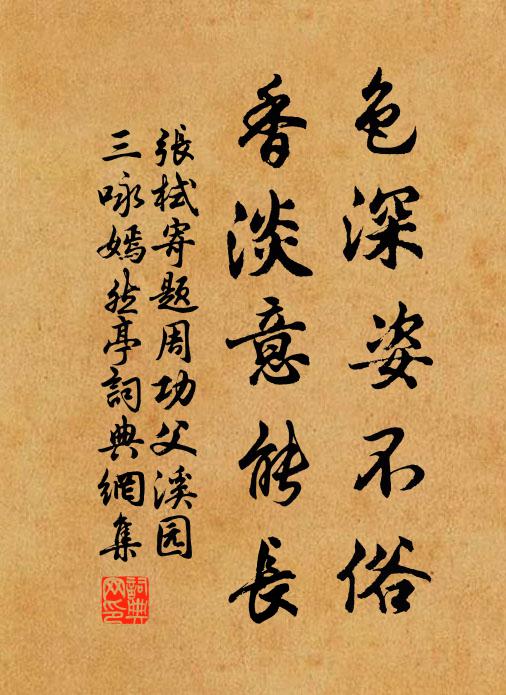 色深姿不俗
香淡意能長
張栻寄題周功父溪园
三咏嫣然亭詞典網集
詞典网印